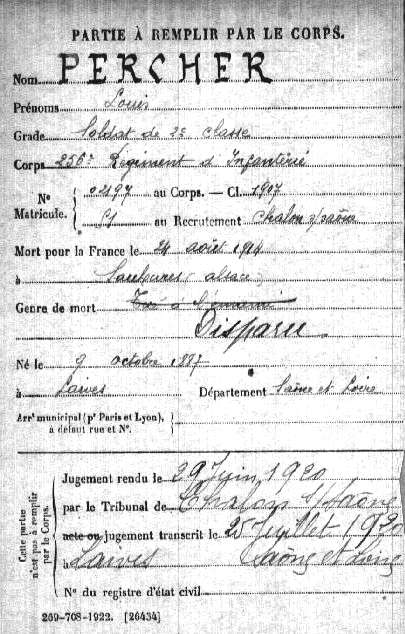 PARTIE À REMPLIR PAR LE CORPS.
Nom PERCHER
Prénoms Louis
Grade Soldat de 2e classe
Corps 256e Régiment d'Infanterie
N° Matricule. { 02197 au Corps. — Cl. 1907
au Recrutement Chalon s/saône
Mort pour la France le 24 août 1914
à (alsace)
Genre de mort Tué à l'ennemi
Disparu
Né le 9 octobre 1887
à Laives Département Saône et Loire
Arrt municipal (pr Paris et Lyon), à défaut rue et N°. }
Cette partie n'est pas à remplir par le Corps. {
Jugement rendu le 29 Juin 1920
par le Tribunal de Chalon s/Saône
acte ou jugement transcrit le 25 Juillet 1920
à Laives Saône et Loire
N° du registre d'état civil
269-708-1922. [26434]